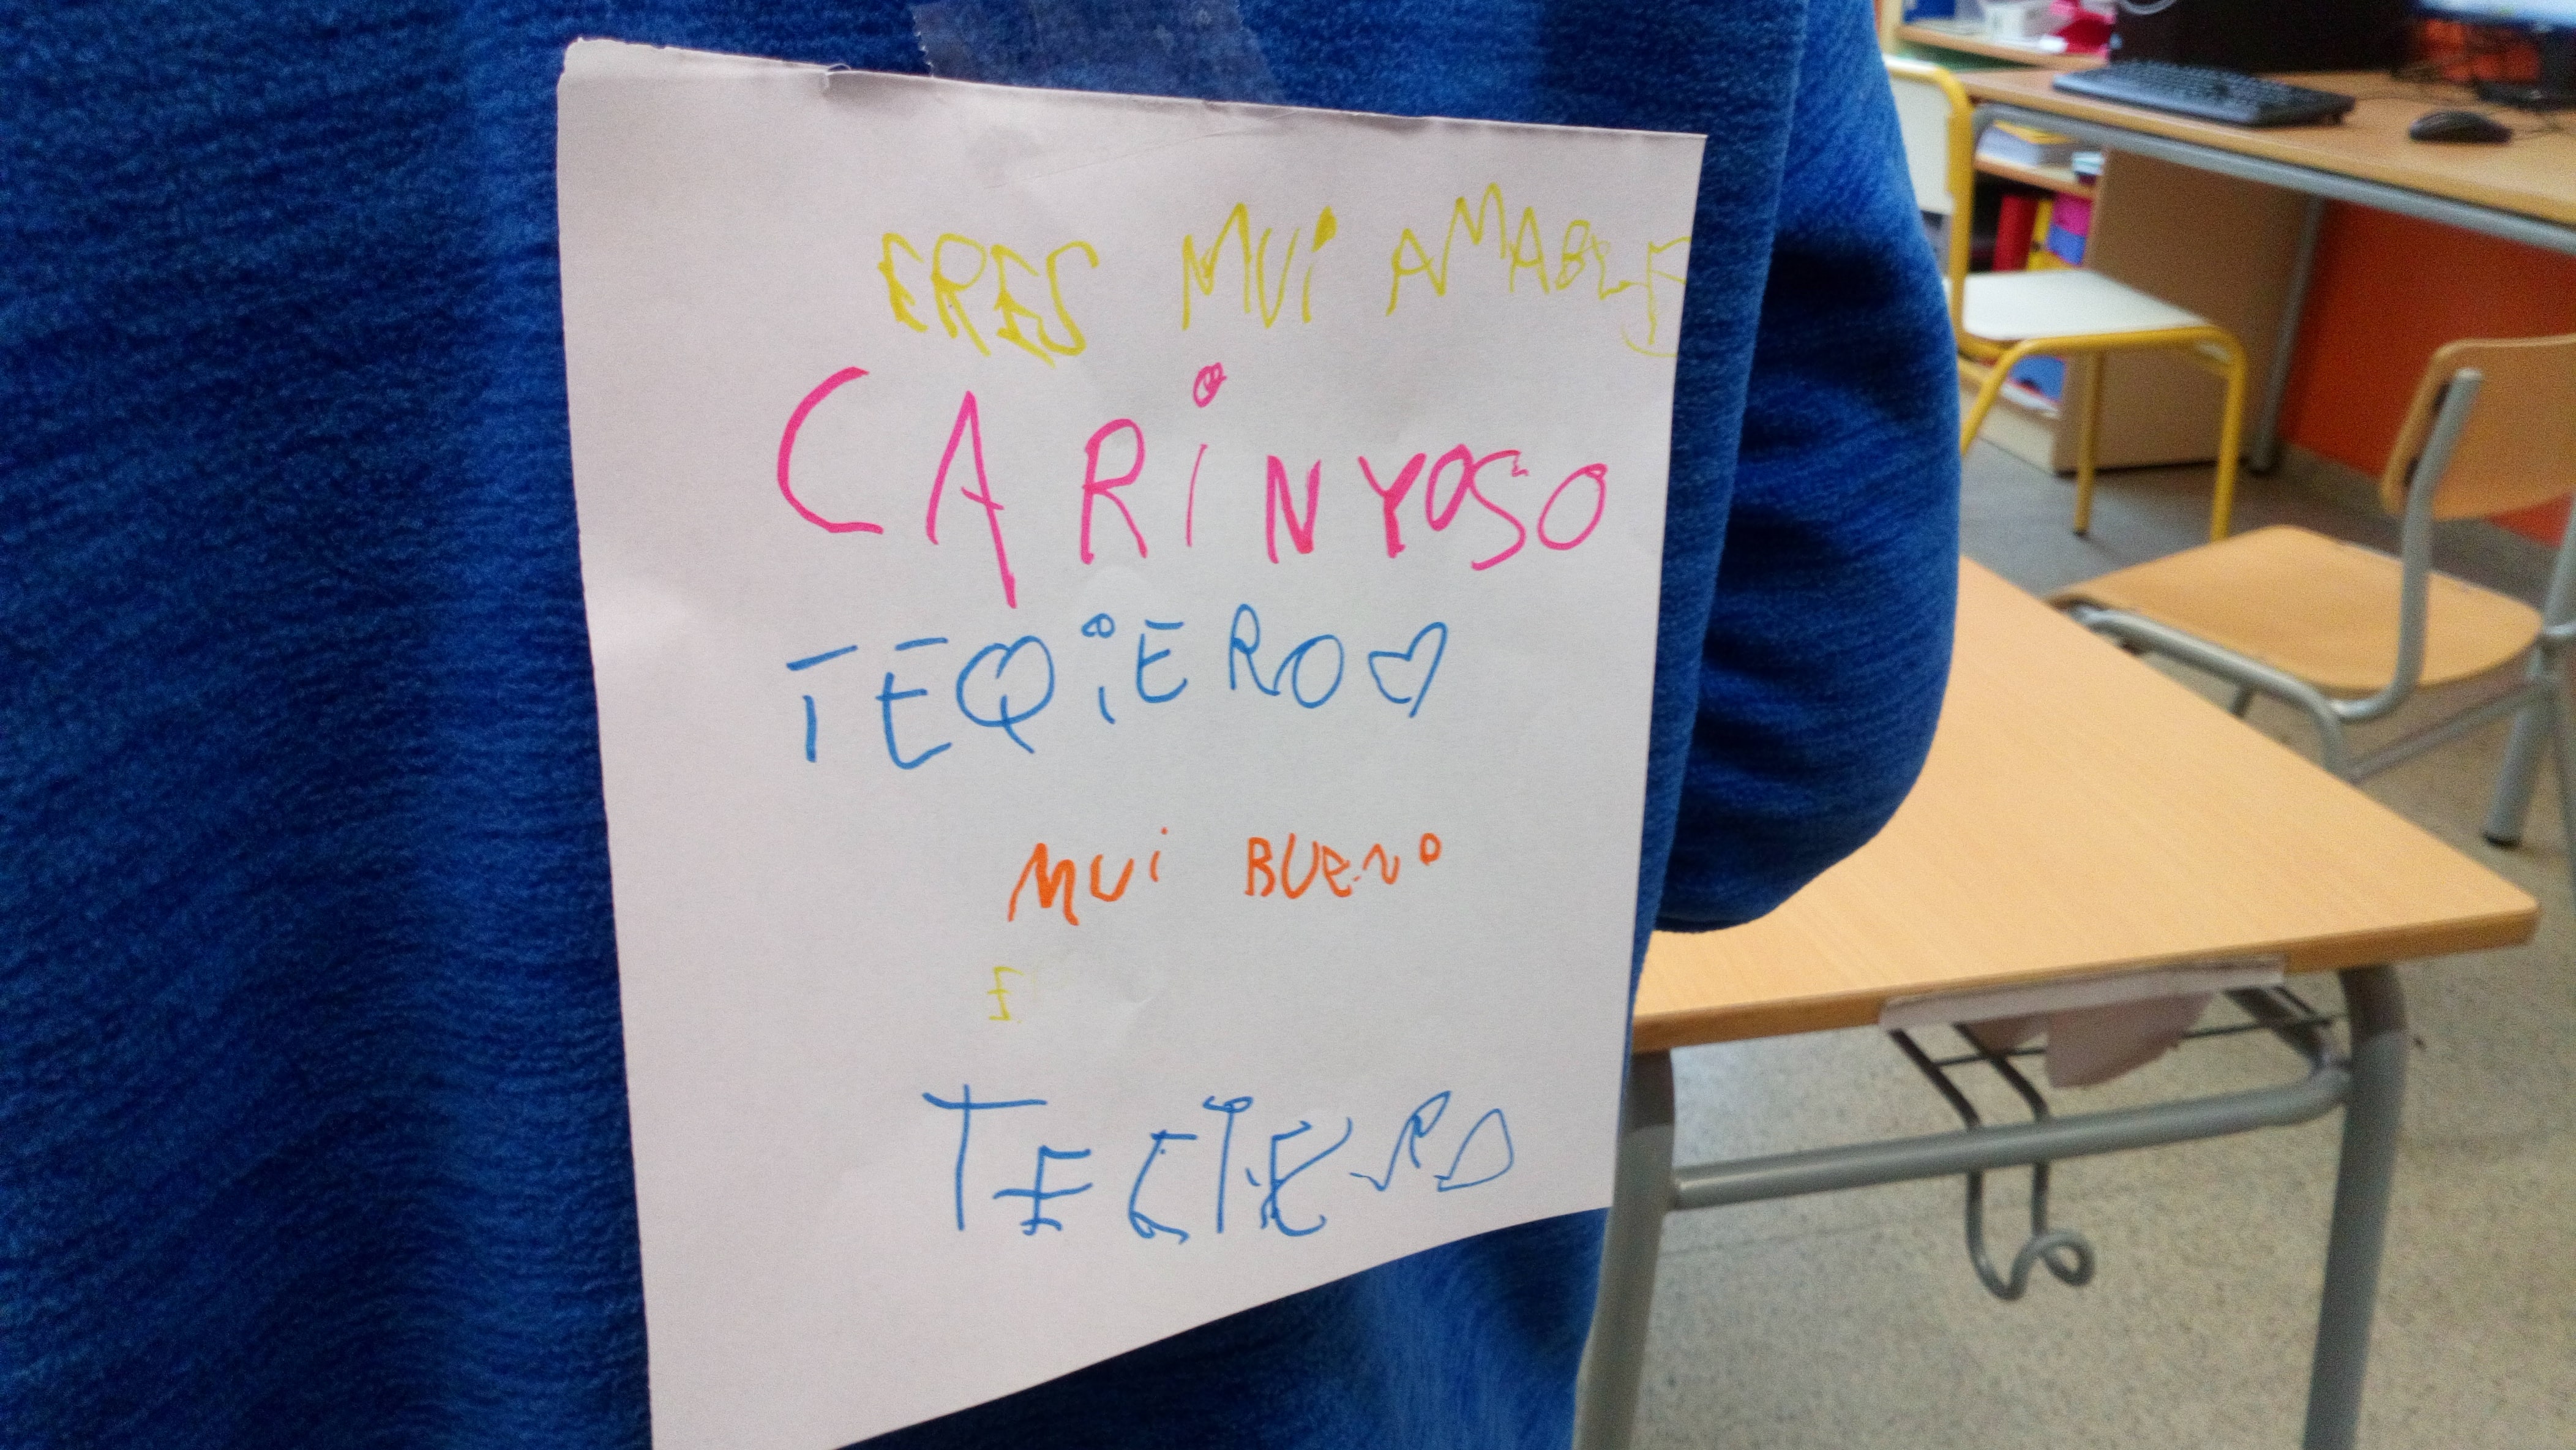 ERES MUi AMABLE
CARiNYOSO
TEQiERO
MUi BUENO
E
TECiERO